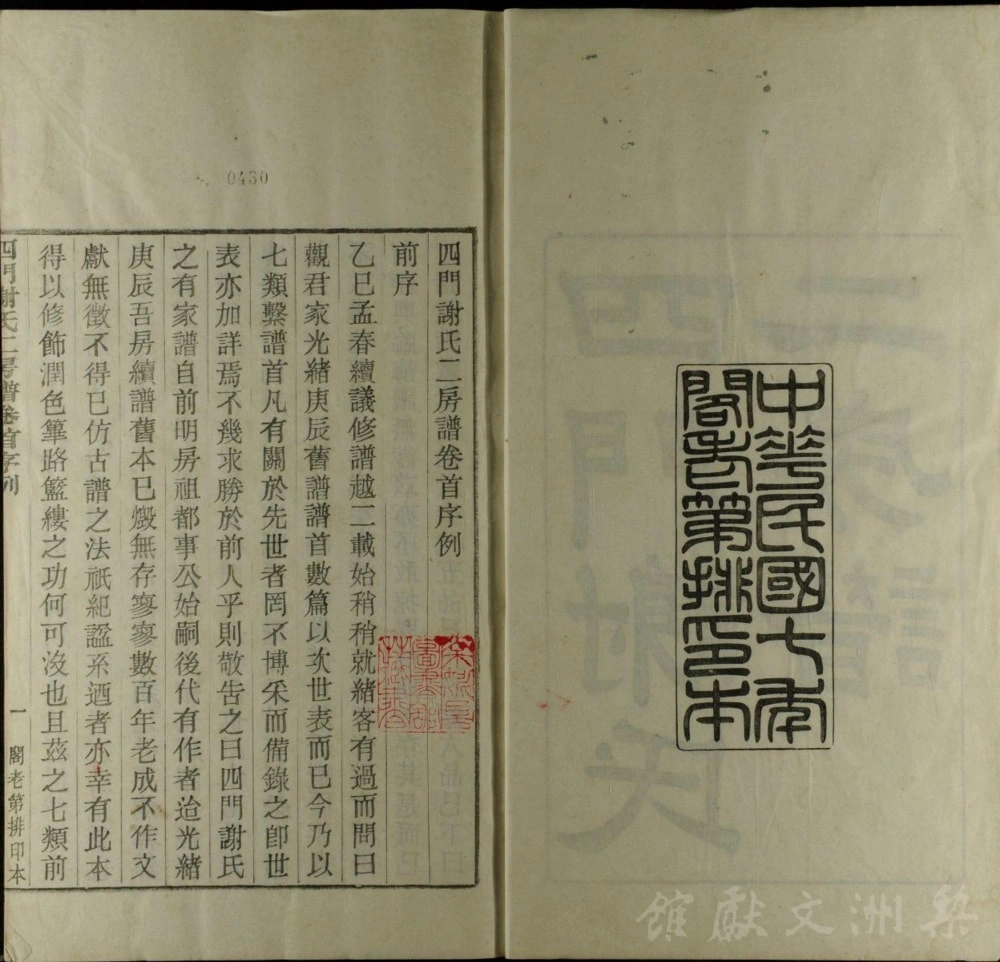 中華民國七年
閣老第排印本
四門謝氏二房譜卷首序例
前序
乙巳孟春續議修譜越二載始稍稍就緒客有過而問曰
觀君家光緒庚辰舊譜譜首數篇以次世表而已今乃以
七類繫譜首凡有關於先世者罔不博采而備錄之卽世
表亦加詳焉不幾求勝於前人乎則敬告之曰四門謝氏
之有家譜自前明房祖都事公始嗣後代有作者迨光緒
庚辰吾房續譜舊本已燬無存寥寥數百年老成不作文
獻無徵不得已仿古譜之法祇紀諡系迺者亦幸有此本
得以修飾潤色篳路籃縷之功何可沒也且茲之七類前
四門謝氏二房譜卷首序例
一
閣老第排印本
0430
梨洲文獻館